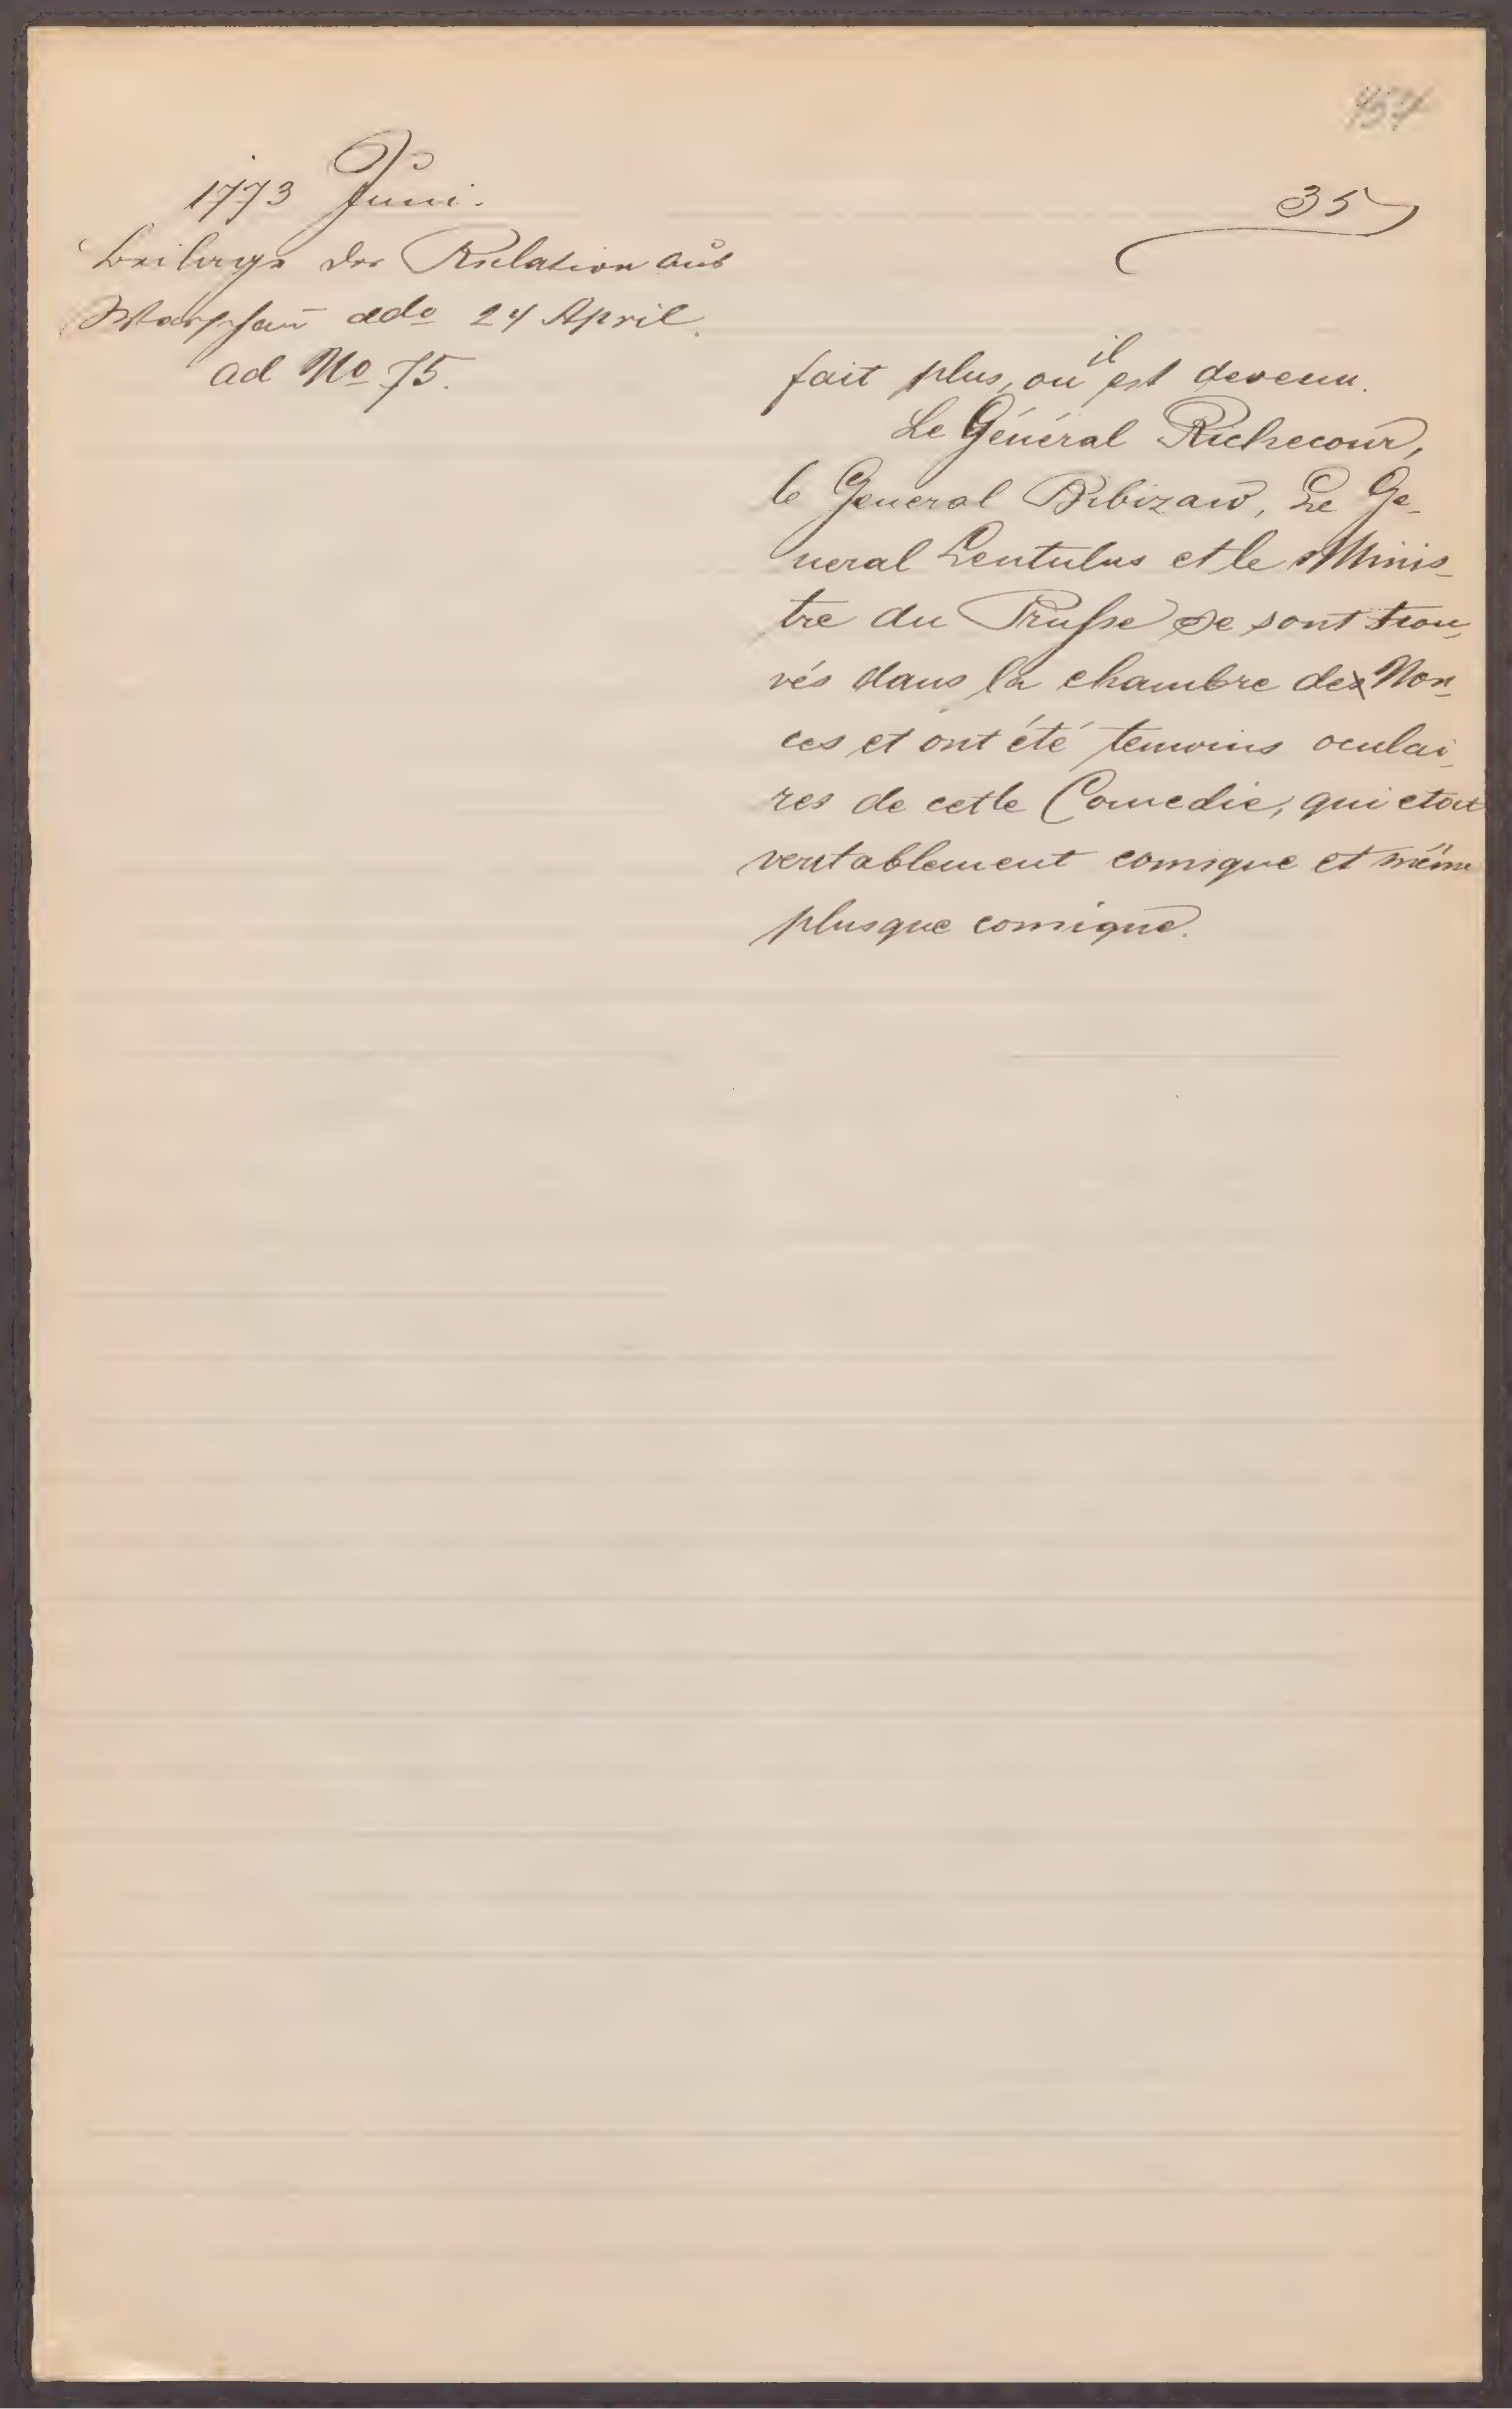 457
35
1773 Juni.
Beilage der Relation aus
Warschau ddo 24 April.
ad No 75.
fait plus, ou il est devenu.
Le Général Richecour,
le General Bibizaw, Le Ge-
neral Lentulus et le Minis-
tre du Prusse se sont trou-
vés dans la chambre des Non-
ces et ont été temoins oculai-
res de cette Comedie, qui etoit
veritablement comique et même
plusque comique.